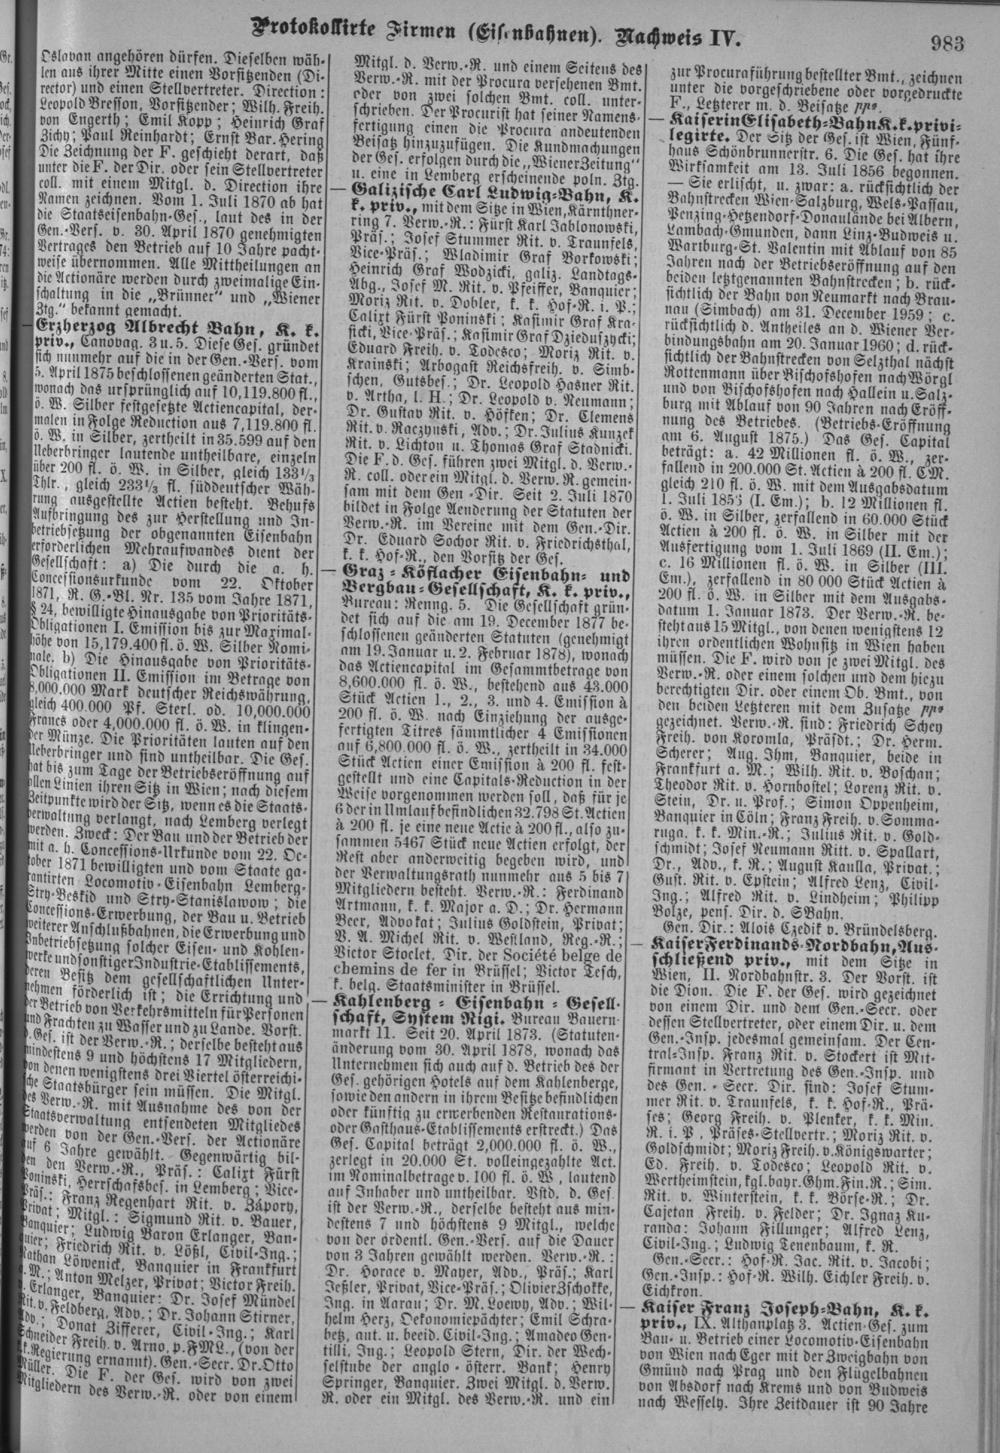 Protokollirte Firmen (Eisenbahnen). Nachweis IV.
983
Oslavan angehören dürfen. Dieselben wäh-
len aus ihrer Mitte einen Vorsitzenden (Di-
rector) und einen Stellvertreter. Direction:
Leopold Bresson, Vorsitzender; Wilh. Freih.
von Engerth; Emil Kopp; Heinrich Graf
Zichy; Paul Reinhardt; Ernst Bar. Hering
Die Zeichnung der F. geschieht derart, daß
unter die F. der Dir. oder sein Stellvertreter
coll. mit einem Mitgl. d. Direction ihre
Namen zeichnen. Vom 1. Juli 1870 ab hat
die Staatseisenbahn-Ges., laut des in der
Gen.-Vers. v. 30. April 1870 genehmigten
Vertrages den Betrieb auf 10 Jahre pacht-
weise übernommen. Alle Mittheilungen an
die Actionäre werden durch zweimalige Ein-
schaltung in die „Brünner“ und „Wiener
Ztg.“ bekannt gemacht.
— Erzherzog Albrecht Bahn, K. k.
priv., Canovag. 3 u. 5. Diese Ges. gründet
sich nunmehr auf die in der Gen.-Vers. vom
5. April 1875 beschlossenen geänderten Stat.,
wonach das ursprünglich auf 10,119.800 fl.,
ö. W. Silber festgesetzte Actiencapital, der-
malen in Folge Reduction aus 7,119.800 fl.
ö. W. in Silber, zertheilt in 35.599 auf den
Ueberbringer lautende untheilbare, einzeln
über 200 fl. ö. W. in Silber, gleich 133⅓
Thlr., gleich 233⅓ fl. süddeutscher Wäh-
rung ausgestellte Actien besteht. Behufs
Aufbringung des zur Herstellung und In-
betriebsetzung der obgenannten Eisenbahn
erforderlichen Mehraufwandes dient der
Gesellschaft: a) Die durch die a. h.
Concessionsurkunde vom 22. Oktober
1871, R. G.-Bl. Nr. 135 vom Jahre 1871,
§ 24, bewilligte Hinausgabe von Prioritäts-
Obligationen I. Emission bis zur Maximal-
höhe von 15,179.400 fl. ö. W. Silber Nomi-
nale. b) Die Hinausgabe von Prioritäts-
Obligationen II. Emission im Betrage von
8,000.000 Mark deutscher Reichswährung,
gleich 400.000 Pf. Sterl. od. 10,000.000
Francs oder 4,000.000 fl. ö. W. in klingen-
der Münze. Die Prioritäten lauten auf den
Ueberbringer und sind untheilbar. Die Ges.
hat bis zum Tage der Betriebseröffnung auf
allen Linien ihren Sitz in Wien; nach diesem
Zeitpunkte wird der Sitz, wenn es die Staats-
verwaltung verlangt, nach Lemberg verlegt
werden. Zweck: Der Bau und der Betrieb der
mit a. h. Concessions-Urkunde vom 22. Oc-
tober 1871 bewilligten und vom Staate ga-
rantirten Locomotiv-Eisenbahn Lemberg-
Stry-Beskid und Stry-Stanislawow; die
Concessions-Erwerbung, der Bau u. Betrieb
weiterer Anschlußbahnen, die Erwerbung und
Inbetriebsetzung solcher Eisen- und Kohlen-
werke und sonstiger Industrie-Etablissements,
deren Besitz dem gesellschaftlichen Unter-
nehmen förderlich ist; die Errichtung und
der Betrieb von Verkehrsmitteln für Personen
und Frachten zu Wasser und zu Lande. Vorst.
d. Ges. ist der Verw.-R.; derselbe besteht aus
mindestens 9 und höchstens 17 Mitgliedern,
von denen wenigstens drei Viertel österreichi-
sche Staatsbürger sein müssen. Die Mitgl.
des Verw.-R. mit Ausnahme des von der
Staatsverwaltung entsendeten Mitgliedes
werden von der Gen.-Vers. der Actionäre
auf 6 Jahre gewählt. Gegenwärtig bil-
den den Verw.-R., Präs.: Calixt Fürst
Poninski, Herrschafsbes. in Lemberg; Vice-
Präs.: Franz Regenhart Rit. v. Zápory,
Privat; Mitgl.: Sigmund Rit. v. Bauer,
Banquier; Ludwig Baron Erlanger, Ban-
quier; Friedrich Rit. v. Lößl, Civil-Ing.;
Nathan Löwenick, Banquier in Frankfurt
a. M.; Anton Melzer, Privat; Victor Freih.
v. Erlanger, Banquier; Dr. Josef Mündel
Rit. v. Feldberg, Adv.; Dr. Johann Stirner,
Adv.; Donat Zifferer, Civil-Ing.; Karl
Schneider Freih. v. Arno, p. FML., (von der
k. k. Regierung ernannt). Gen.-Secr. Dr. Otto
Müller. Die F. der Ges. wird von zwei
Mitgliedern des Verw.-R. oder von einem
Mitgl. d. Verw.-R. und einem Seitens des
Verw.-R. mit der Procura versehenen Bmt.
oder von zwei solchen Bmt. coll. unter-
schrieben. Der Procurist hat seiner Namens-
fertigung einen die Procura andeutenden
Beisatz hinzuzufügen. Die Kundmachungen
der Ges. erfolgen durch die „Wiener Zeitung“
u. eine in Lemberg erscheinende poln. Ztg.
— Galizische Carl Ludwig-Bahn, K.
k. priv., mit dem Sitze in Wien, Kärnthner-
ring 7. Verw.-R.: Fürst Karl Jablonowski,
Präs.; Josef Stummer Rit. v. Traunfels,
Vice-Präs.; Wladimir Graf Borkowski;
Heinrich Graf Wodzicki, galiz. Landtags-
Abg., Josef M. Rit. v. Pfeiffer, Banquier;
Moriz Rit. v. Dobler, k. k. Hof-R. i. P.;
Calixt Fürst Poninski; Kasimir Graf Kra-
sicki, Vice-Präs.; Kasimir Graf Dzieduszycki;
Eduard Freih. v. Todesco; Moriz Rit. v.
Krainski; Arbogast Reichsfreih. v. Simb-
schen, Gutsbes.; Dr. Leopold Hasner Rit.
v. Artha, l. H.; Dr. Leopold v. Neumann;
Dr. Gustav Rit. v. Höfken; Dr. Clemens
Rit. v. Raczynski, Adv.; Dr. Julius Kunzek
Rit. v. Lichton u. Thomas Graf Stadnicki.
Die F. d. Ges. führen zwei Mitgl. d. Verw.-
R. coll. oder ein Mitgl. d. Verw. R. gemein-
sam mit dem Gen-Dir. Seit 2. Juli 1870
bildet in Folge Aenderung der Statuten der
Verw.-R. im Vereine mit dem Gen.-Dir.
Dr. Eduard Sochor Rit. v. Friedrichsthal,
k. k. Hof-R., den Vorsitz der Ges.
— Graz-Köflacher Eisenbahn- und
Bergbau-Gesellschaft, K. k. priv.,
Bureau: Renng. 5. Die Gesellschaft grün-
det sich auf die am 19. December 1877 be-
schlossenen geänderten Statuten (genehmigt
am 19. Januar u. 2. Februar 1878), wonach
das Actiencapital im Gesammtbetrage von
8,600.000 fl. ö. W., bestehend aus 43.000
Stück Actien 1., 2., 3. und 4. Emission à
200 fl. ö. W. nach Einziehung der ausge-
fertigten Titres sämmtlicher 4 Emissionen
auf 6,800.000 fl. ö. W., zertheilt in 34.000
Stück Actien einer Emission à 200 fl. fest-
gestellt und eine Capitals-Reduction in der
Weise vorgenommen werden soll, daß für je
6 der in Umlauf befindlichen 32.798 St. Actien
à 200 fl. je eine neue Actie à 200 fl., also zu-
sammen 5467 Stück neue Actien erfolgt, der
Rest aber anderweitig begeben wird, und
der Verwaltungsrath nunmehr aus 5 bis 7
Mitgliedern besteht. Verw.-R.: Ferdinand
Artmann, k. k. Major a. D.; Dr. Hermann
Beer, Advokat; Julius Goldstein, Privat;
V. A. Michel Rit. v. Westland, Reg.-R.;
Victor Stoclet, Dir. der Société belge de
chemins de fer in Brüssel; Victor Tesch,
k. belg. Staatsminister in Brüssel.
— Kahlenberg-Eisenbahn-Gesell-
schaft, System Rigi. Bureau Bauern-
markt 11. Seit 20. April 1873. (Statuten-
änderung vom 30. April 1878, wonach das
Unternehmen sich auch auf d. Betrieb des der
Ges. gehörigen Hotels auf dem Kahlenberge,
sowie den andern in ihrem Besitze befindlichen
oder künftig zu erwerbenden Restaurations-
oder Gasthaus-Etablissements erstreckt.) Das
Ges. Capital beträgt 2,000.000 fl. ö. W.,
zerlegt in 20.000 St. volleingezahlte Act.
im Nominalbetrage v. 100 fl. ö. W, lautend
auf Inhaber und untheilbar. Vstd. d. Ges.
ist der Verw.-R., derselbe besteht aus min-
destens 7 und höchstens 9 Mitgl., welche
von der ordentl. Gen.-Vers. auf die Dauer
von 3 Jahren gewählt werden. Verw.-R.:
Dr. Horace v. Mayer, Adv., Präs.; Karl
Jeßler, Privat, Vice-Präs.; Olivier Zschokke,
Ing. in Aarau; Dr. M. Loewy, Adv.; Wil-
helm Herz, Oekonomiepächter; Emil Schra-
betz, aut. u. beeid. Civil-Ing.; Amadeo Gen-
tilli, Ing.; Leopold Stern, Dir. der Wech-
selstube der anglo-österr. Bank; Henry
Springer, Banquier. Zwei Mitgl. d. Verw.
R. oder ein Mitgl. des Verw.-R. und ein
zur Procuraführung bestellter Bmt., zeichnen
unter die vorgeschriebene oder vorgedruckte
F., Letzterer m. d. Beisatze ppo.
— Kaiserin Elisabeth-Bahn K. k. privi-
legirte. Der Sitz der Ges. ist Wien, Fünf-
haus Schönbrunnerstr. 6. Die Ges. hat ihre
Wirksamkeit am 13. Juli 1856 begonnen.
— Sie erlischt, u. zwar: a. rücksichtlich der
Bahnstrecken Wien-Salzburg, Wels-Passau,
Penzing-Hetzendorf-Donaulände bei Albern,
Lambach-Gmunden, dann Linz-Budweis u.
Wartburg-St. Valentin mit Ablauf von 85
Jahren nach der Betriebseröffnung auf den
beiden letztgenannten Bahnstrecken; b. rück-
sichtlich der Bahn von Neumarkt nach Brau-
nau (Simbach) am 31. December 1959; c.
rücksichtlich d. Antheiles an d. Wiener Ver-
bindungsbahn am 20. Januar 1960; d. rück-
sichtlich der Bahnstrecken von Selzthal nächst
Rottenmann über Bischofshofen nach Wörgl
und von Bischofshofen nach Hallein u. Salz-
burg mit Ablauf von 90 Jahren nach Eröff-
nung des Betriebes. (Betriebs-Eröffnung
am 6. August 1875.) Das Ges. Capital
beträgt: a. 42 Millionen fl. ö. W., zer-
fallend in 200.000 St. Actien à 200 fl. CM.
gleich 210 fl. ö. W. mit dem Ausgabsdatum
1. Juli 1856 (I. Em.); b. 12 Millionen fl.
ö. W. in Silber, zerfallend in 60.000 Stück
Actien à 200 fl. ö. W. in Silber mit der
Ausfertigung vom 1. Juli 1869 (II. Em.);
c. 16 Millionen fl. ö. W. in Silber (III.
Em.), zerfallend in 80 000 Stück Actien à
200 fl. ö. W. in Silber mit dem Ausgabs-
datum 1. Januar 1873. Der Verw.-R. be-
steht aus 15 Mitgl., von denen wenigstens 12
ihren ordentlichen Wohnsitz in Wien haben
müssen. Die F. wird von je zwei Mitgl. des
Verw.-R. oder einem solchen und dem hiezu
berechtigten Dir. oder einem Ob. Bmt., von
den beiden Letzteren mit dem Zusatze ppo
gezeichnet. Verw.-R. sind: Friedrich Schey
Freih. von Koromla, Präsdt.; Dr. Herm.
Scherer; Aug. Ihm, Banquier, beide in
Frankfurt a. M.; Wilh. Rit. v. Boschan;
Theodor Rit. v. Hornbostel; Lorenz Rit. v.
Stein, Dr. u. Prof.; Simon Oppenheim,
Banquier in Cöln; Franz Freih. v. Somma-
ruga, k. k. Min.-R.; Julius Rit. v. Gold-
schmidt; Josef Neumann Ritt. v. Spallart,
Dr., Adv., k. R.; August Kaulla, Privat.;
Gust. Rit. v. Epstein; Alfred Lenz, Civil-
Ing.; Alfred Rit. v. Lindheim; Philipp
Bolze, pens. Dir. d. SBahn.
Gen. Dir.: Alois Czedik v. Bründelsberg.
— Kaiser Ferdinands-Nordbahn, Aus-
schließend priv., mit dem Sitze in
Wien, II. Nordbahnstr. 3. Der Vorst. ist
die Dion. Die F. der Ges. wird gezeichnet
von einem Dir. und dem Gen.-Secr. oder
dessen Stellvertreter, oder einem Dir. u. dem
Gen.-Insp. jedesmal gemeinsam. Der Cen-
tral-Insp. Franz Rit. v. Stockert ist Mit-
firmant in Vertretung des Gen.-Insp. und
des Gen.-Secr. Dir. sind: Josef Stum-
mer Rit. v. Traunfels, k. k. Hof-R., Prä-
ses; Georg Freih. v. Plenker, k. k. Min.
R. i. P, Präses-Stellvertr.; Moriz Rit. v.
Goldschmidt; Moriz Freih. v. Königswarter;
Ed. Freih. v. Todesco; Leopold Rit. v.
Wertheimstein, kgl. bayr. Ghm. Fin. R.; Sim.
Rit. v. Winterstein, k. k. Börse-R.; Dr.
Cajetan Freih. v. Felder; Dr. Ignaz Ku-
randa; Johann Fillunger; Alfred Lenz,
Civil-Ing.; Ludwig Tenenbaum, k. R.
Gen.-Secr.: Hof-R. Jac. Rit. v. Jacobi;
Gen.-Insp.: Hof-R. Wilh. Eichler Freih. v.
Eichkron.
— Kaiser Franz Joseph-Bahn, K. k.
priv., IX. Althanplatz 3. Actien-Ges. zum
Bau- u. Betrieb einer Locomotiv-Eisenbahn
von Wien nach Eger mit der Zweigbahn von
Gmünd nach Prag und den Flügelbahnen
von Absdorf nach Krems und von Budweis
nach Wessely. Ihre Zeitdauer ist 90 Jahre